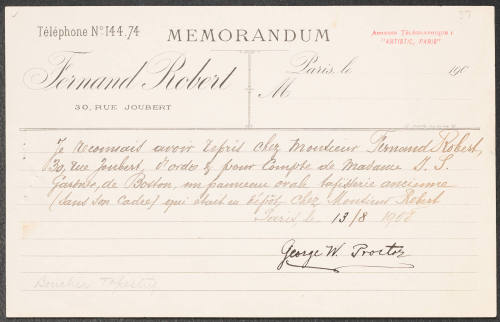 37
Téléphone No 144.74
MEMORANDUM
Adresse Télégraphique:
"ARTISTIC, PARIS"
Fernand Robert
Paris, le 190
M
30, RUE JOUBERT
Je reconnais avoir repris chez Monsieur Fernand Robert,
30, rue Joubert, d'ordre & pour compte de Madame J. S.
Gardner, de Boston, un panneau ovale tapisserie ancienne
(dans son cadre) qui était en dépôt chez Monsieur Robert
Paris, le 13/8 1908
George W. Proctor
Boucher Tapestry